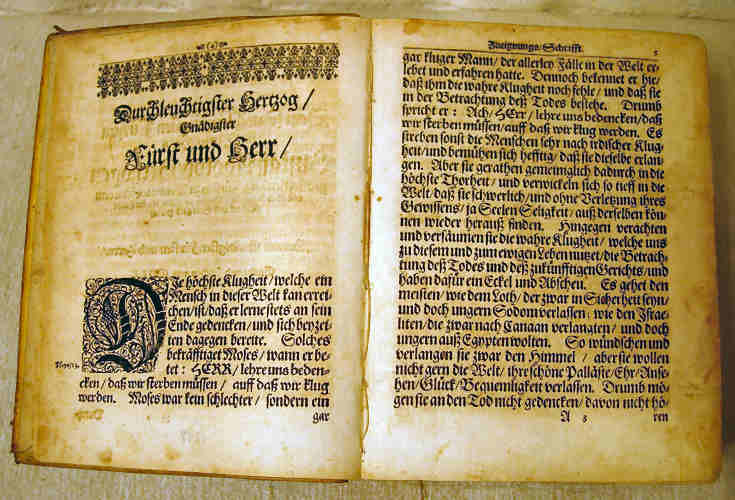 (4)
Durchleuchtigster Hertzog /
Gnädigster
Fürst und Herr /
DJe höchste Klugheit / welche ein
Mensch in dieser Welt kan errei-
chen / ist / daß er lerne stets an sein
Ende gedencken / und sich bey zei-
ten dagegen bereite. Solches
bekräfftiget Moses / wann er be-
tet: HERR / lehre uns beden-
cken / daß wir sterben müssen / auff daß wir klug
werden. Moses war kein schlechter / sondern ein
gar
Zueignungs-Schrifft. 5
gar kluger Mann / der allerley Fälle in der Welt er-
lebet und erfahren hatte. Dennoch bekennet er hie /
daß ihm die wahre Klugheit noch fehle / und daß sie
in der Betrachtung deß Todes bestehe. Drumb
spricht er: Ach / HErr / lehre uns bedencken / daß
wir sterben müssen / auff daß wir klug werden. Es
streben sonst die Menschen sehr nach irdischer Klug-
heit / und bemühen sich hefftig / daß sie dieselbe erlan-
gen. Aber sie gerathen gemeiniglich dadurch in die
höchste Thorheit / und verwickeln sich so tieff in die
Welt / daß sie schwerlich / und ohne Verletzung ihres
Gewissens / ja Seelen Seligkeit / auß derselben kön-
nen wieder herauß finden. Hingegen verachten
und versäumen sie die wahre Klugheit / welche uns
zu diesem und zum ewigen Leben nutzet / die Betrach-
tung deß Todes und deß zukünfftigen Gerichts / und
haben dafür ein Eckel und Abscheu. Es gehet den
meisten / wie dem Loth / der zwar in Sicherheit seyn /
und doch ungern Sodom verlassen; wie den Jsrae-
liten / die zwar nach Canaan verlangten / und doch
ungern auß Egypten wolten. So wündschen und
verlangen sie zwar den Himmel / aber sie wollen
nicht gern die Welt / ihre schöne Palläste / Ehr / Anse-
hen / Glück / Bequemligkeit verlassen. Drumb mö-
gen sie an den Tod nicht gedencken / davon nicht hö-
A 3 ren